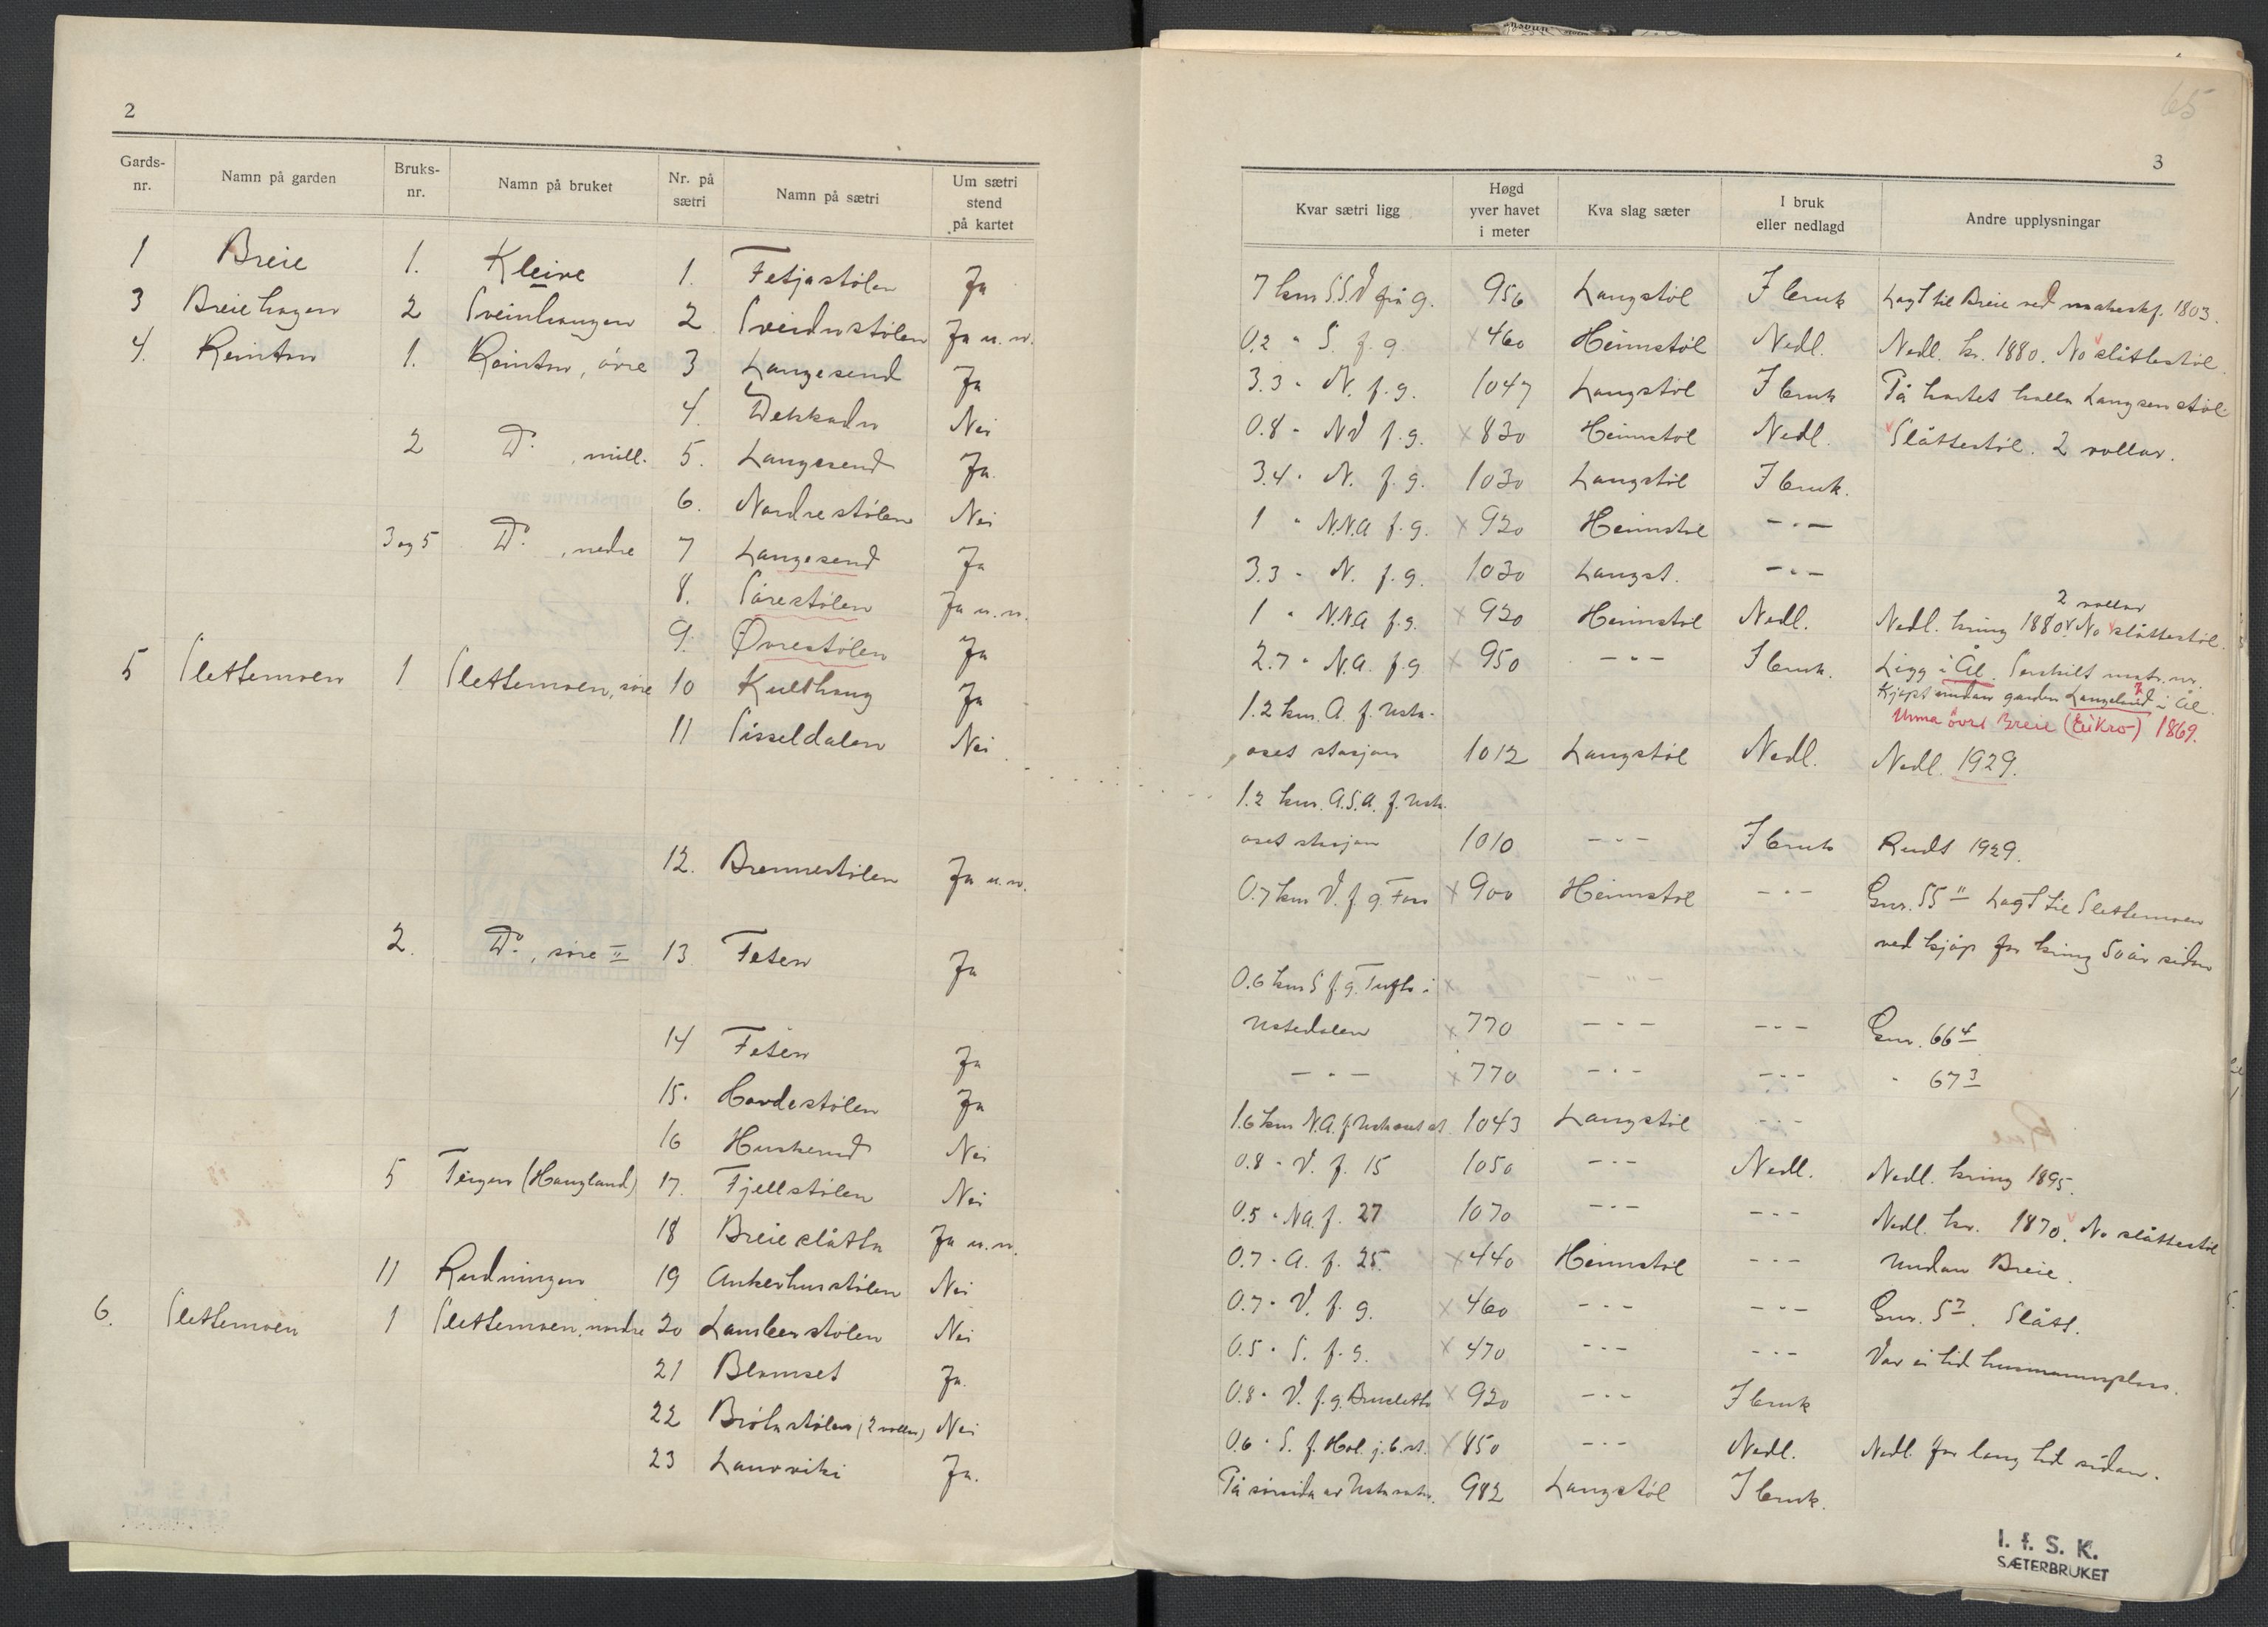 2
Gards-nr. Namn på garden Bruks-nr. Namn på bruket Nr. på sætri Namn på sætri Um sætri stend på kartet
1 Breie 1. Kleive 1. Fetjastølen Ja
3 Breiehagen 2 Sveinhaugen 2 Sveidnstølen Ja u.n.
4. Reinton 1. Reinton, øvre 3 Langesend Ja
4. Nei
2 Do, mill. 5. Langesend Ja.
6. Nordrestølen Nei
3 og 5 Do, nedre 7 Langesend Ja
8. Sørestølen Ja u.n.
9. Øvrestølen Ja
5 Slettemoen 1 Slettemoen, søre 10 Kulthaug Ja
11 Sisseldalen Nei
12. Brennestølen Ja u.n.
2. Do, søre II 13 Feten Ja
14 Feten Ja
15. Hovdestølen Ja
16 Nei
5 Teigen (Haugland) 17. Fjellstølen Nei
18 Breieslåtta Ja u.n.
11 Rudningen 19 Ankerhusstølen Nei
6. Slettemoen 1 Slettemoen, nordre 20 Nei
21 Ja.
22 (2 vollar) Nei
23 Ja.
65
3
Kvar sætri ligg Høgd yver havet i meter Kva slag sæter I bruk eller nedlagd Andre upplysningar
7 km S.S.V frå g. 956 Langstøl I bruk Lagt til Breie ved makeskf. 1803.
0.2 " S. f. g. x 460 Heimstøl Nedl. Nedl. kr. 1880. No slåttestøl.
3.3 " N. f. g. 1047 Langstøl I bruk På kartet kalla Langsenstøl.
0.8 " NV f. g. x 830 Heimstøl Nedl. Slåttestøl. 2 vollar.
3.4 " N. f. g. 1030 Langstøl I bruk.
1 " N.N.A f. g. x 920 Heimstøl - " -
3.3 " N. f. g. 1030 Langst. - " -
2 vollar
1 " N.N.A f. g. x 920 Heimstøl Nedl. Nedl. kring 1880. No slåttestøl.
2.7 " N.A. f. g x 950 - " - I bruk. Ligg i Ål. Serskilt matr.nr.
Kjøpt undan garden Langeland i Ål.
Unna øvre Breie 1869.
1.2 km. A. f. Usta-
oset stasjon 1012 Langstøl Nedl. Nedl. 1929.
1.2 km. A.S.A. f. Usta-
oset stasjon 1010 - " - I bruk Rudt 1929.
0.7 km V. f. g. Foss x 900 Heimstøl - " - Gnr. 55 11 Lagt til Slettemoen
ved kjøp for kring 50 år sidan
0.6 km S f. g. Tufto i x - " -
Ustedalen x 770 - " - - " - Gnr. 66 4
- " - x 770 - " - - " - " 67 3
1.6 km N.A. f. Ustaoset st. 1043 Langstøl - " -
0.8 " V. f. 15 1050 - " - Nedl. Nedl. kring 1895.
0.5 " NA. f. 27 1070 - " - - " - Nedl. kr. 1870. No slåttestøl
0.7 " A. f. 25. x 440 Heimstøl - " - Undan Breie.
0.7 " V. f. g. x 460 - " - - " - Gnr. 5 7. Slått.
0.5 " S. f. g. x 470 - " - - " - Var ei tid husmannsplass.
0.8 " V. f. g. Brusletto x 920 - " - I bruk
0.6 " S. f. Hol. j.b.st. x 850 - " - Nedl. Nedl. for lang tid sidan.
På sørsida av Ustevatn. 982 Langstøl I bruk.
I. f. S. K.
SÆTERBRUKET